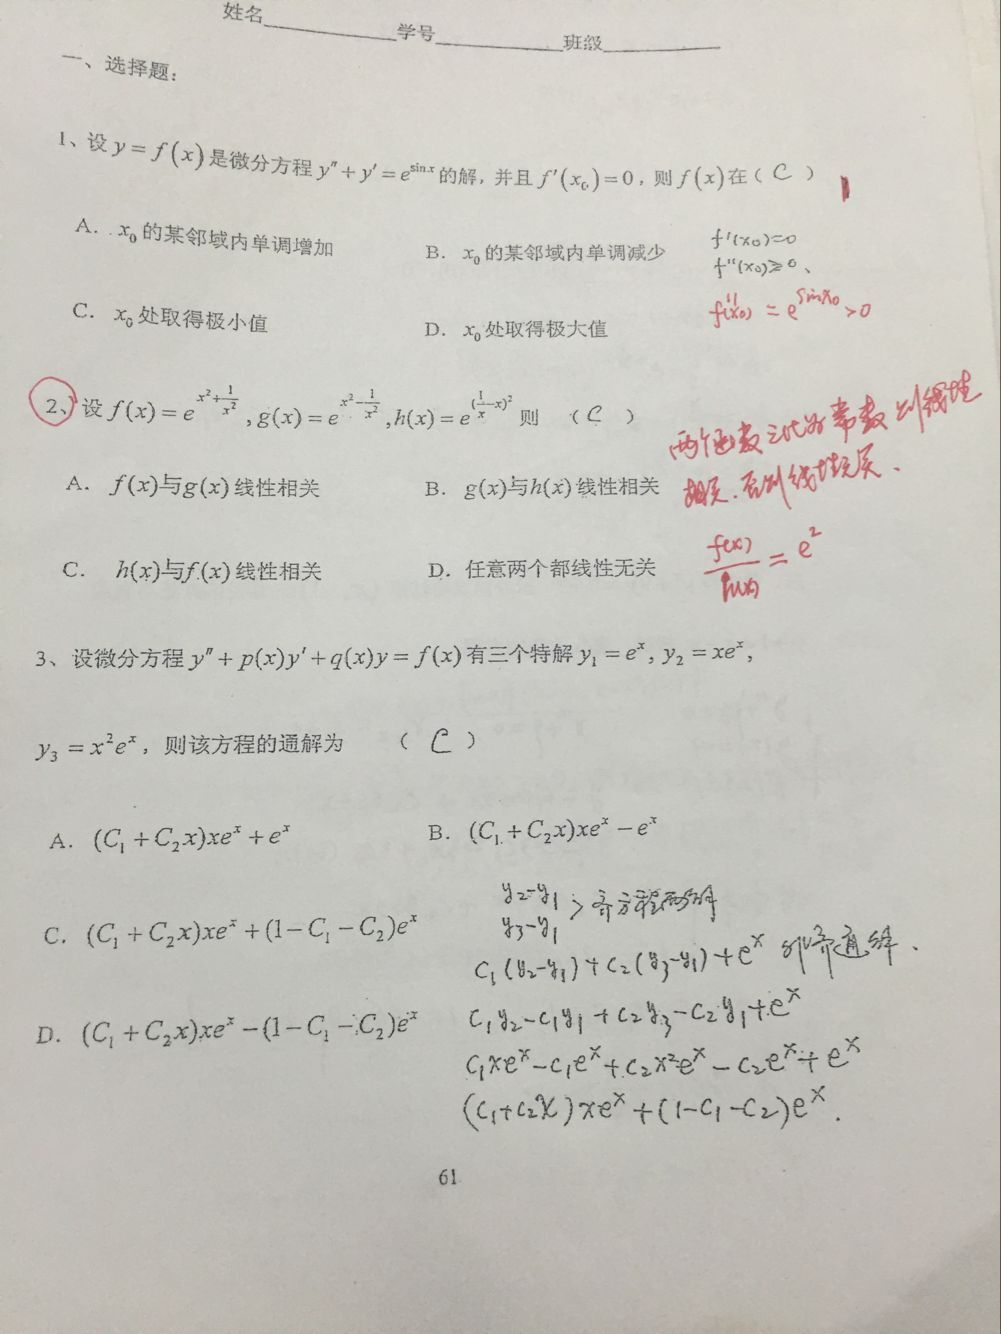 姓名 学号 班级
一、选择题：
1、设 y = f(x) 是微分方程 y″ + y′ = e^{sin x} 的解，并且 f′(x₀) = 0，则 f(x) 在（ C ）
A． x₀ 的某邻域内单调增加
B． x₀ 的某邻域内单调减少
f′(x₀)=0
f″(x₀)≥0、
C． x₀ 处取得极小值
D． x₀ 处取得极大值
f″(x₀) = e^{sinx₀} >0
2、设 f(x) = e^{x²+1/x²} , g(x) = e^{x²-1/x²} , h(x) = e^{(1/x-x)²} 则 （ C ）
两个函数之比为常数则线性
相关．否则线性无关．
A． f(x)与g(x) 线性相关
B． g(x)与h(x) 线性相关
C． h(x)与f(x) 线性相关
D．任意两个都线性无关
f(x)/h(x) = e²
3、设微分方程 y″ + p(x)y′ + q(x)y = f(x) 有三个特解 y₁ = eˣ, y₂ = xeˣ,
y₃ = x²eˣ，则该方程的通解为 （ C ）
A．(C₁ + C₂x)xeˣ + eˣ
B．(C₁ + C₂x)xeˣ − eˣ
C．(C₁ + C₂x)xeˣ + (1−C₁−C₂)eˣ
D．(C₁ + C₂x)xeˣ − (1−C₁−C₂)eˣ
y₂−y₁
y₃−y₁
> 齐方程两解
C₁(y₂−y₁)+C₂(y₃−y₁)+eˣ 非齐通解．
C₁y₂−C₁y₁+C₂y₃−C₂y₁+eˣ
C₁xeˣ−C₁eˣ+C₂x²eˣ−C₂eˣ+eˣ
(C₁+C₂x)xeˣ+(1−C₁−C₂)eˣ．
61